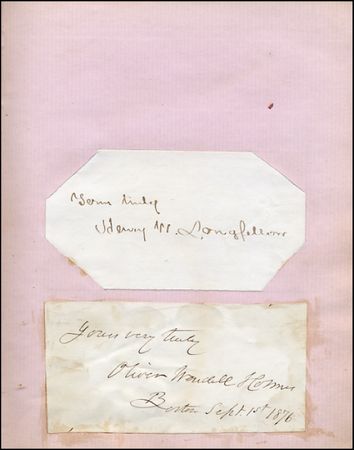 Yours truly
Henry W. Longfellow
Yours very truly
Oliver Wendell Holmes
Boston Sept. 1st 1876